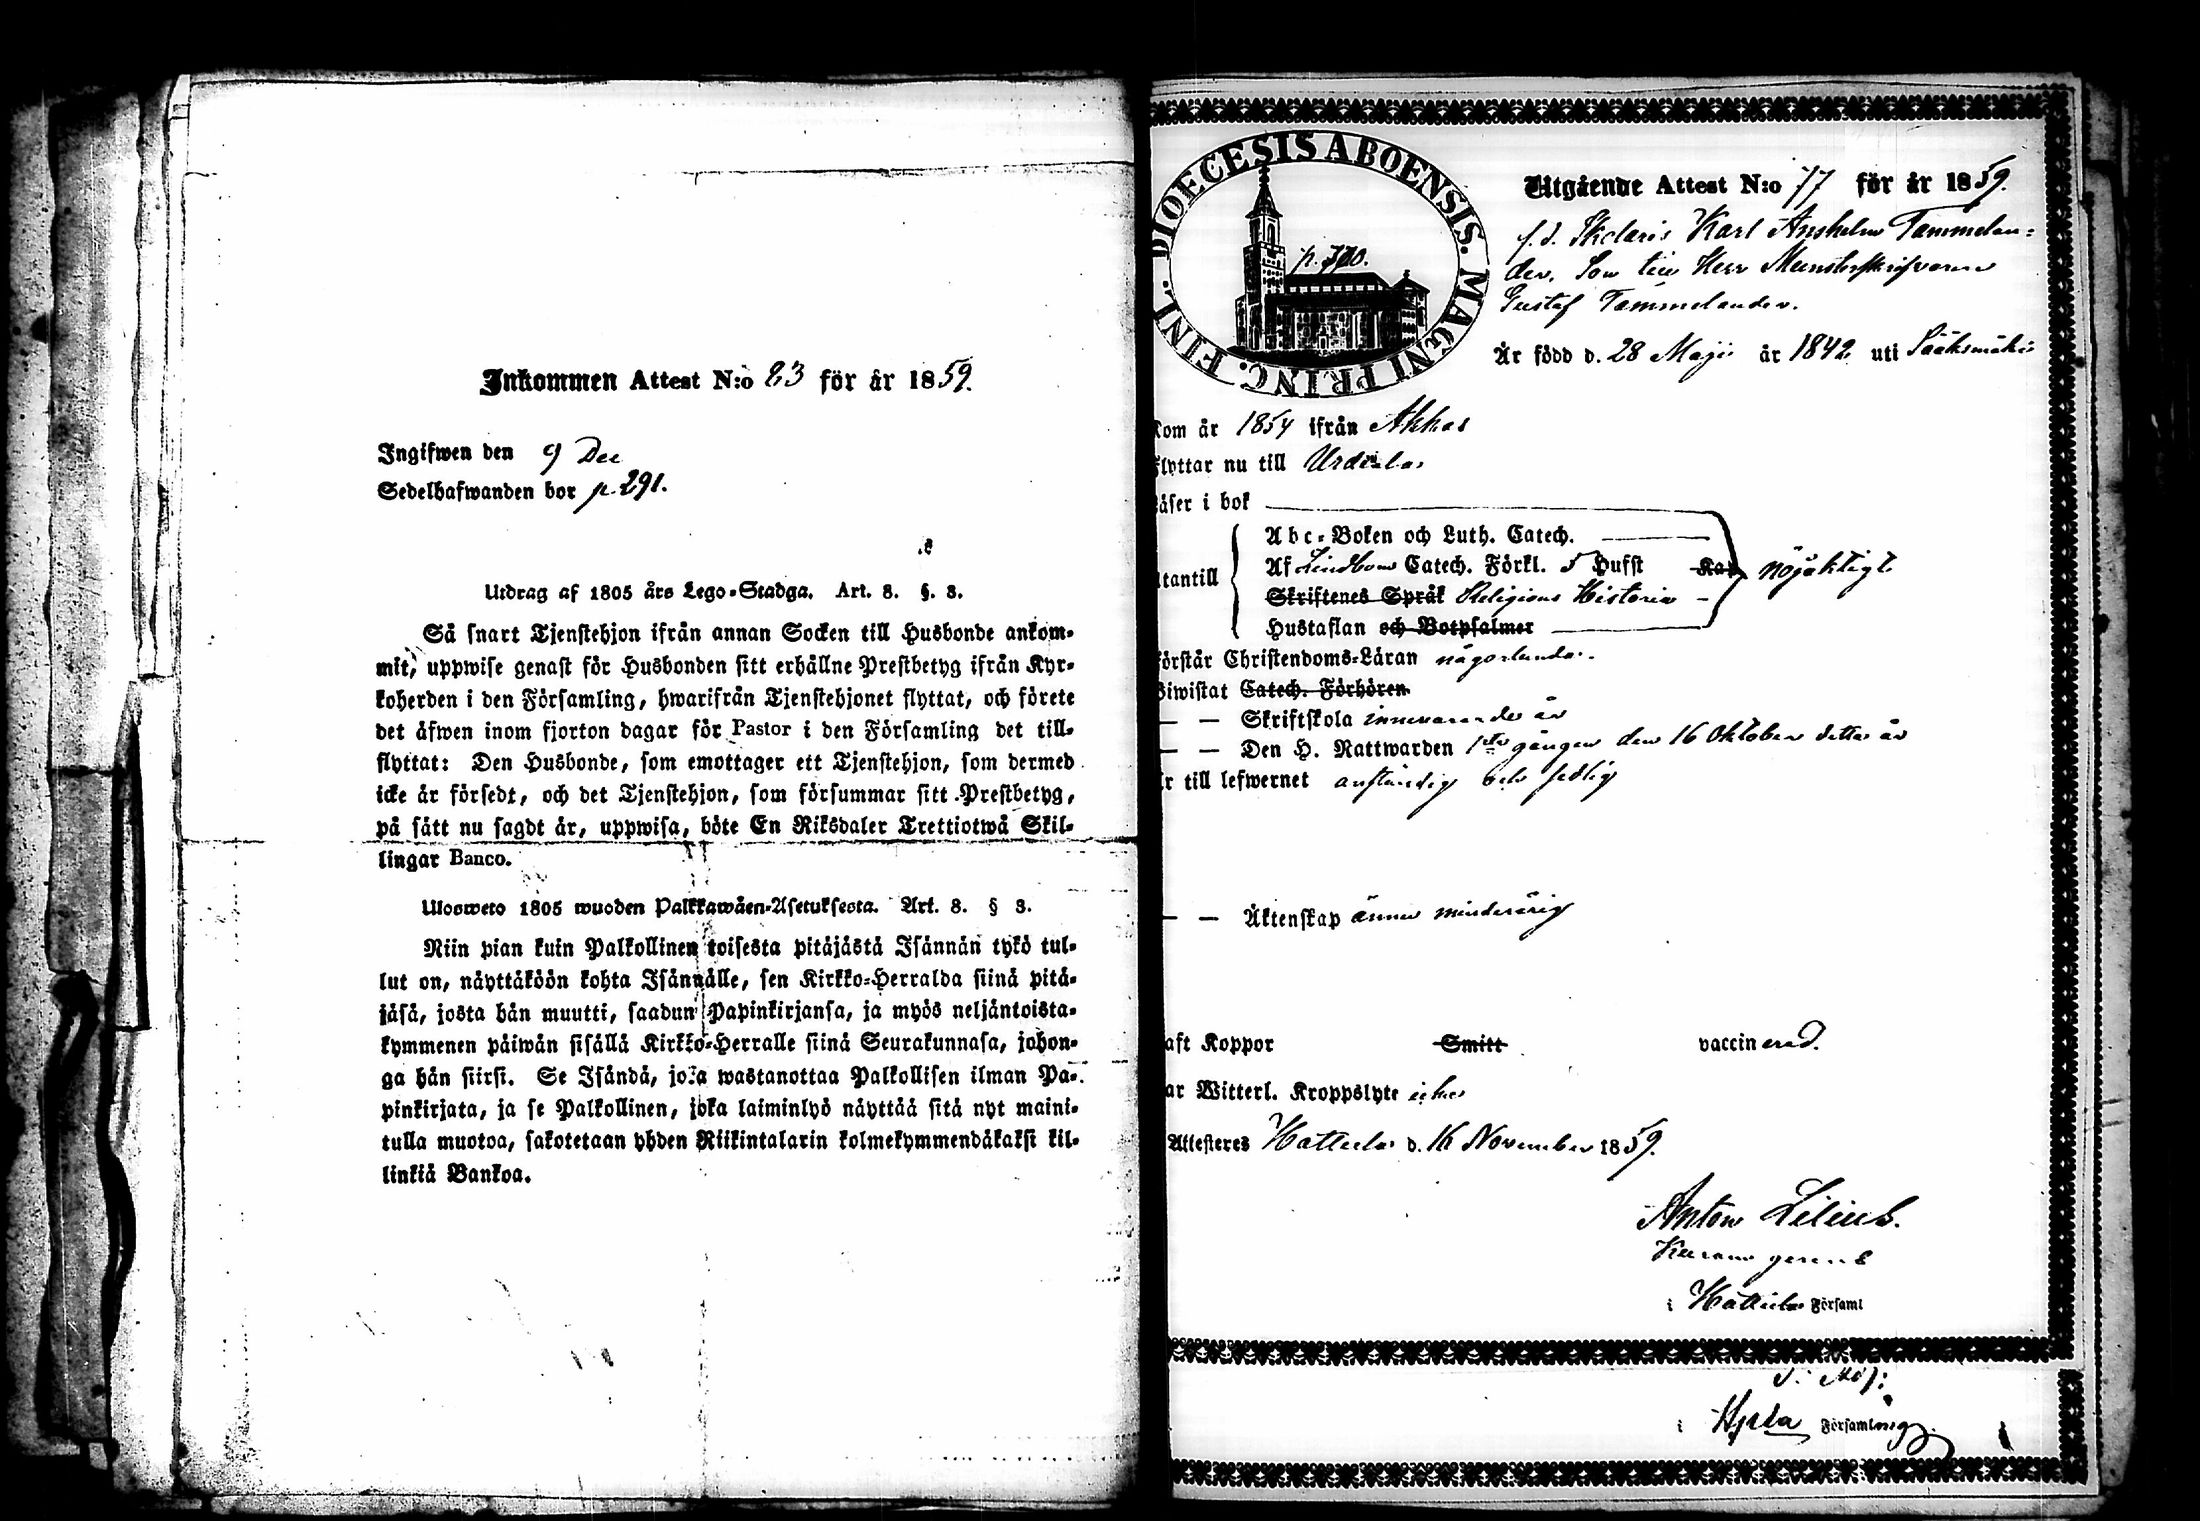 Inkommen Attest N:o 23 för år 1859.
Ingifwen den 9 Dec
Sedelhafwanden bor p. 291.
Utdrag af 1805 års Lego-Stadga. Art. 8. §. 3.
Så snart Tjenstehjon ifrån annan Socken till Husbonde ankom-
mit, uppwise genast för Husbonden sitt erhållne Prestbetyg ifrån Kyr-
koherden i den Församling, hwarifrån Tjenstehjonet flyttat, och förete
det äfwen inom fjorton dagar för Pastor i den Församling det till-
flyttat: Den Husbonde, som emottager ett Tjenstehjon, som dermed
icke är försedt, och det Tjenstehjon, som försummar sitt Prestbetyg,
på sätt nu sagdt är, uppwisa, böte En Riksdaler Trettiotwå Skil-
lingar Banco.
Uloosweto 1805 wuoden Palkkawäen-Asetuksesta. Art. 8. § 3.
Niin pian kuin Palkollinen toisesta pitäjästä Isännän tykö tul-
lut on, näyttäköön kohta Isännälle, sen Kirkko-Herralda siinä pitä-
jäsä, josta hän muutti, saadun Papinkirjansa, ja myös neljäntoista-
kymmenen päiwän sisällä Kirkko-Herralle siinä Seurakunnasa, johon-
ga hän siirsi. Se Isändä, joka wastanottaa Palkollisen ilman Pa-
pinkirjata, ja se Palkollinen, joka laiminlyö näyttää sitä nyt maini-
tulla muotoa, sakotetaan yhden Riikintalarin kolmekymmendäkaksi kil-
linkiä Bankoa.
DIOECESIS ABOENSIS. MAGNI PRINC. FINL.
p. 370.
Utgående Attest N:o 77 för år 1859.
f. d. Skolaris Karl Anshelm Tammelan=
der, Son till Herr Mönsterskrifvaren
Gustaf Tammelander.
Är född d. 28 Maji år 1842 uti Sääksmäki
Kom år 1854 ifrån Akkas
flyttar nu till Urdiala
Läser i bok
Abc-Boken och Luth. Catech.
utantill Af Lindbom Catech. Förkl. 5 Hufst Kap nöjaktigt
Skriftenes Språk Religions Historia
Hustaflan och Botpsalmer
förstår Christendoms-Läran någorlunda.
Biwistat Catech. Förhören
— — Skriftskola innevarande år
— — Den H. Nattwarden 1sta gången den 16 Oktober detta år
Är till lefwernet anständig och sedlig
— — Äktenskap ännu minderårig
haft Koppor Smitt vaccinerad.
har Witterl. Kroppslyte icke
Attesteres Hattula d. 16 November 1859.
Anton Lilius.
Curam gerens
i Hattula Församl
i Församling